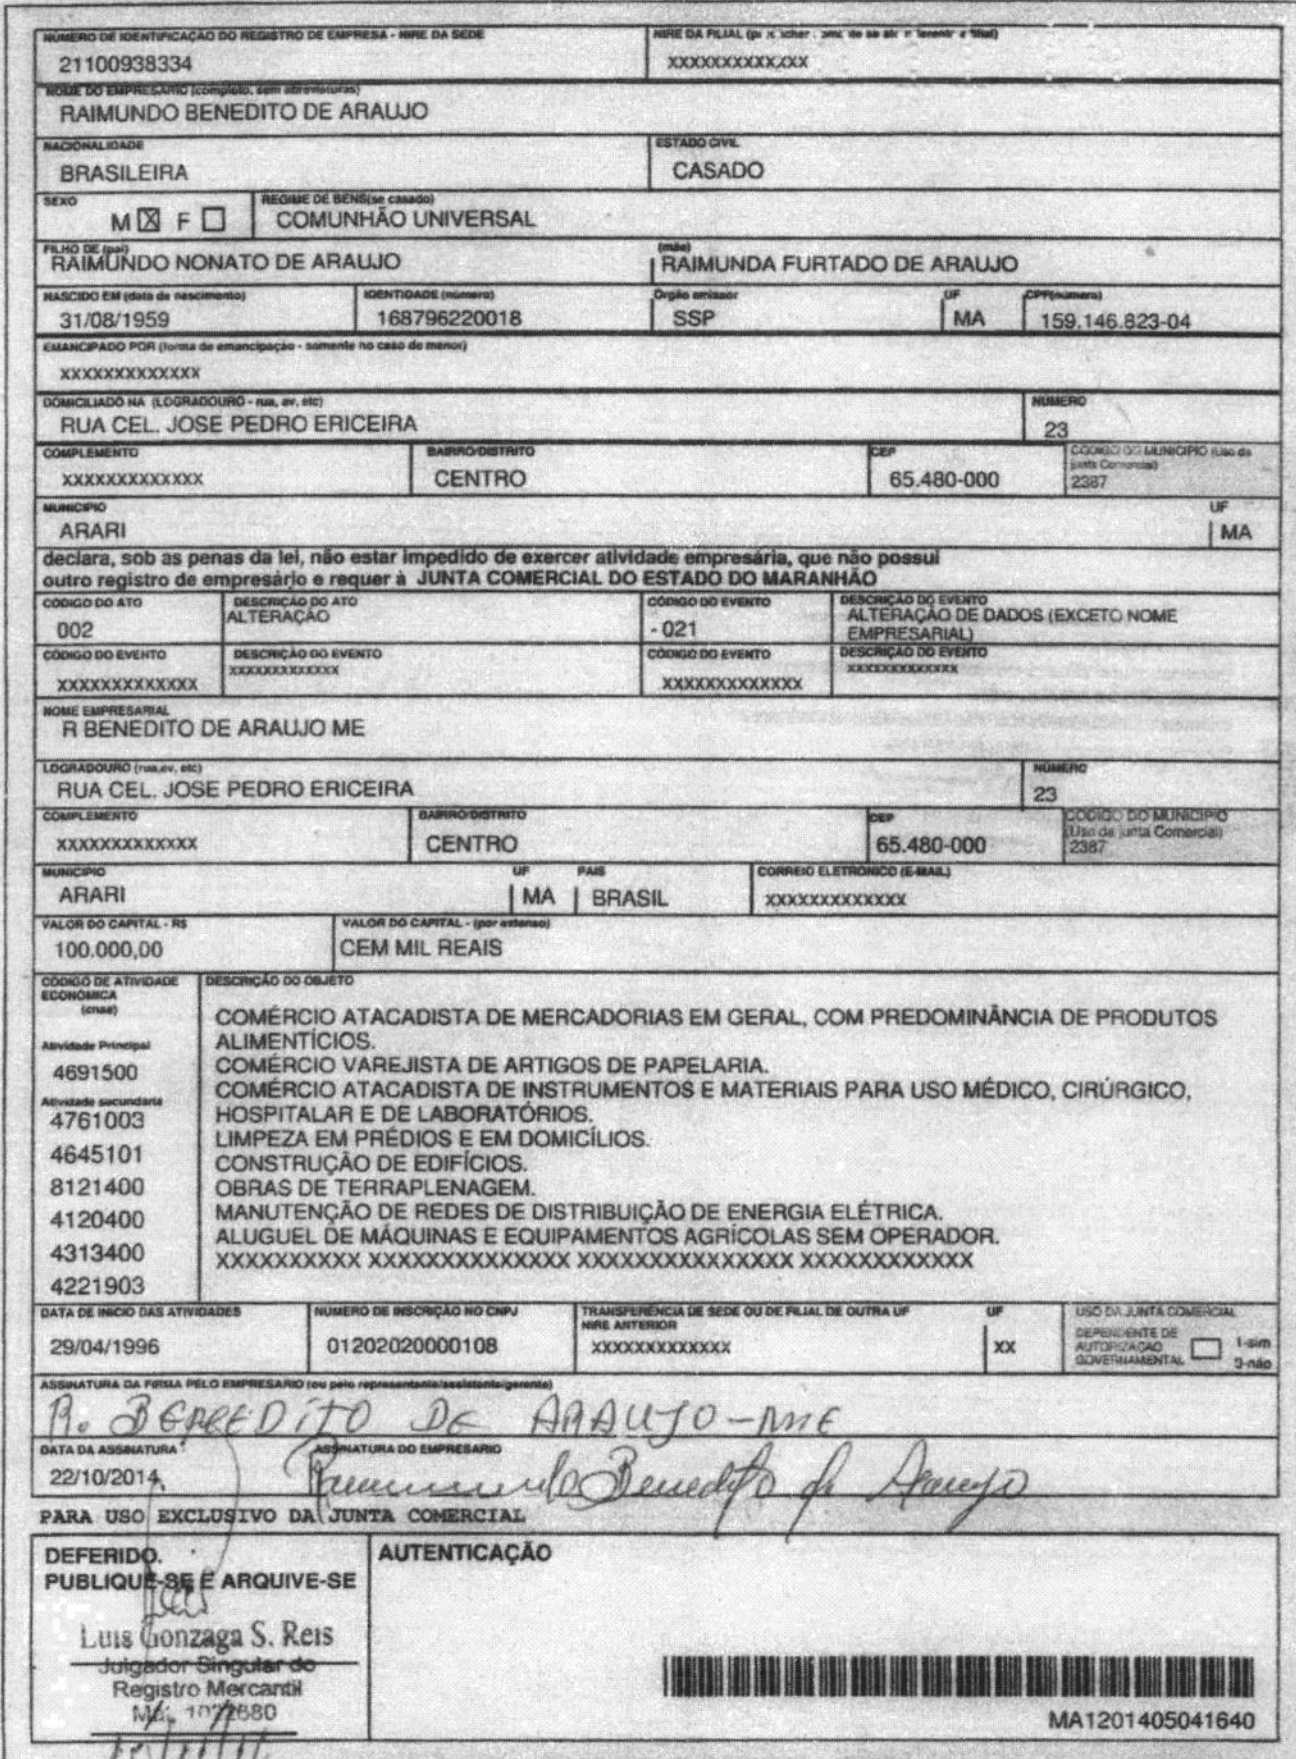 NÚMERO DE IDENTIFICAÇÃO DO REGISTRO DE EMPRESA - NIRE DA SEDE
21100938334
NIRE DA FILIAL
XXXXXXXXXXXXX
NOME DO EMPRESARIO (completo, sem abreviaturas)
RAIMUNDO BENEDITO DE ARAUJO
NACIONALIDADE
BRASILEIRA
ESTADO CIVIL
CASADO
SEXO
M ☒ F ☐
REGIME DE BENS(se casado)
COMUNHÃO UNIVERSAL
FILHO DE (pai)
RAIMUNDO NONATO DE ARAUJO
(mãe)
RAIMUNDA FURTADO DE ARAUJO
NASCIDO EM (data de nascimento)
31/08/1959
IDENTIDADE (número)
168796220018
Órgão emissor
SSP
UF
MA
CPF(número)
159.146.823-04
EMANCIPADO POR (forma de emancipação - somente no caso de menor)
XXXXXXXXXXXXX
DOMICILIADO NA (LOGRADOURO - rua, av, etc)
RUA CEL. JOSE PEDRO ERICEIRA
NÚMERO
23
COMPLEMENTO
XXXXXXXXXXXXX
BAIRRO/DISTRITO
CENTRO
CEP
65.480-000
CÓDIGO DO MUNICIPIO (Uso da
junta Comercial)
2387
MUNICIPIO
ARARI
UF
MA
declara, sob as penas da lei, não estar impedido de exercer atividade empresária, que não possui
outro registro de empresário e requer à JUNTA COMERCIAL DO ESTADO DO MARANHÃO
CÓDIGO DO ATO
002
DESCRIÇÃO DO ATO
ALTERAÇÃO
CÓDIGO DO EVENTO
- 021
DESCRIÇÃO DO EVENTO
ALTERAÇÃO DE DADOS (EXCETO NOME
EMPRESARIAL)
CÓDIGO DO EVENTO
XXXXXXXXXXXXX
DESCRIÇÃO DO EVENTO
XXXXXXXXXXXXX
CÓDIGO DO EVENTO
XXXXXXXXXXXXX
DESCRIÇÃO DO EVENTO
XXXXXXXXXXXXX
NOME EMPRESARIAL
R BENEDITO DE ARAUJO ME
LOGRADOURO (rua,av, etc)
RUA CEL. JOSE PEDRO ERICEIRA
NÚMERO
23
COMPLEMENTO
XXXXXXXXXXXXX
BAIRRO/DISTRITO
CENTRO
CEP
65.480-000
CÓDIGO DO MUNICIPIO
(Uso da junta Comercial)
2387
MUNICIPIO
ARARI
UF
MA
PAIS
BRASIL
CORREIO ELETRÔNICO (E-MAIL)
XXXXXXXXXXXXX
VALOR DO CAPITAL - R$
100.000,00
VALOR DO CAPITAL - (por extenso)
CEM MIL REAIS
CÓDIGO DE ATIVIDADE
ECONÔMICA
(cnae)
Atividade Principal
4691500
Atividade secundaria
4761003
4645101
8121400
4120400
4313400
4221903
DESCRIÇÃO DO OBJETO
COMÉRCIO ATACADISTA DE MERCADORIAS EM GERAL, COM PREDOMINÂNCIA DE PRODUTOS
ALIMENTÍCIOS.
COMÉRCIO VAREJISTA DE ARTIGOS DE PAPELARIA.
COMÉRCIO ATACADISTA DE INSTRUMENTOS E MATERIAIS PARA USO MÉDICO, CIRÚRGICO,
HOSPITALAR E DE LABORATÓRIOS.
LIMPEZA EM PRÉDIOS E EM DOMICÍLIOS.
CONSTRUÇÃO DE EDIFÍCIOS.
OBRAS DE TERRAPLENAGEM.
MANUTENÇÃO DE REDES DE DISTRIBUIÇÃO DE ENERGIA ELÉTRICA.
ALUGUEL DE MÁQUINAS E EQUIPAMENTOS AGRÍCOLAS SEM OPERADOR.
XXXXXXXXXX XXXXXXXXXXXXXX XXXXXXXXXXXXXXX XXXXXXXXXXXX
DATA DE INICIO DAS ATIVIDADES
29/04/1996
NÚMERO DE INSCRIÇÃO NO CNPJ
01202020000108
TRANSFERÊNCIA DE SEDE OU DE FILIAL DE OUTRA UF
NIRE ANTERIOR
XXXXXXXXXXXXX
UF
XX
USO DA JUNTA COMERCIAL
DEPENDENTE DE
AUTORIZAÇÃO
GOVERNAMENTAL
1-sim
3-não
ASSINATURA DA FIRMA PELO EMPRESARIO (ou pelo representante/assistente/gerente)
R. BENEDITO DE ARAUJO-ME
DATA DA ASSINATURA
22/10/2014
ASSINATURA DO EMPRESARIO
Raimundo Benedito de Araujo
PARA USO EXCLUSIVO DA JUNTA COMERCIAL
DEFERIDO.
PUBLIQUE-SE E ARQUIVE-SE
Luis Gonzaga S. Reis
Julgador Singular do
Registro Mercantil
AUTENTICAÇÃO
MA1201405041640